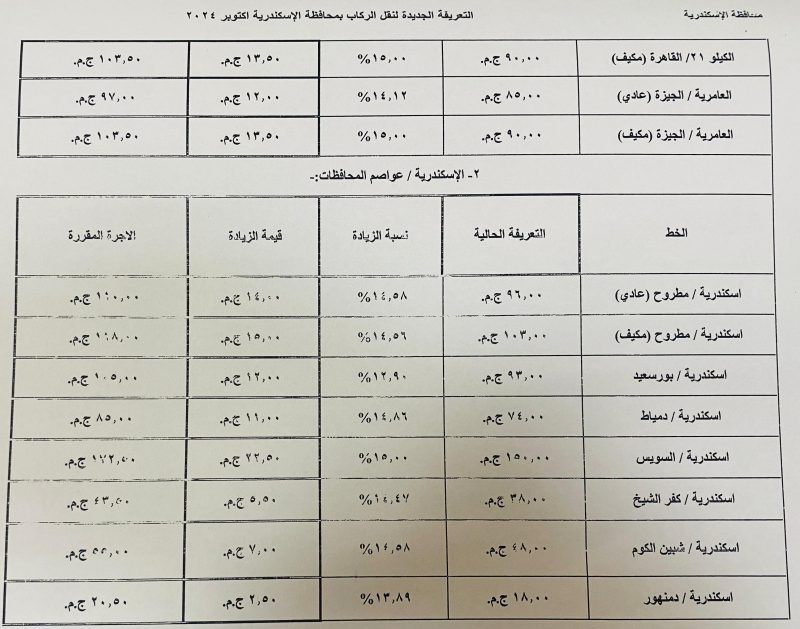 محافظة الإسكندرية
التعريفة الجديدة لنقل الركاب بمحافظة الإسكندرية اكتوبر ٢٠٢٤
الكيلو ٢١/ القاهرة (مكيف) ٩٠,٠٠ ج.م. ١٥,٠٠% ١٣,٥٠ ج.م. ١٠٣,٥٠ ج.م.
العامرية / الجيزة (عادي) ٨٥,٠٠ ج.م. ١٤,١٢% ١٢,٠٠ ج.م. ٩٧,٠٠ ج.م.
العامرية / الجيزة (مكيف) ٩٠,٠٠ ج.م. ١٥,٠٠% ١٣,٥٠ ج.م. ١٠٣,٥٠ ج.م.
٢- الإسكندرية / عواصم المحافظات:-
الخط التعريفة الحالية نسبة الزيادة قيمة الزيادة الاجرة المقررة
اسكندرية / مطروح (عادي) ٩٦,٠٠ ج.م. ١٤,٥٨% ١٤,٠٠ ج.م. ١١٠,٠٠ ج.م.
اسكندرية / مطروح (مكيف) ١٠٣,٠٠ ج.م. ١٤,٥٦% ١٥,٠٠ ج.م. ١١٨,٠٠ ج.م.
اسكندرية / بورسعيد ٩٣,٠٠ ج.م. ١٢,٩٠% ١٢,٠٠ ج.م. ١٠٥,٠٠ ج.م.
اسكندرية / دمياط ٧٤,٠٠ ج.م. ١٤,٨٦% ١١,٠٠ ج.م. ٨٥,٠٠ ج.م.
اسكندرية / السويس ١٥٠,٠٠ ج.م. ١٥,٠٠% ٢٢,٥٠ ج.م. ١٧٢,٥٠ ج.م.
اسكندرية / كفر الشيخ ٣٨,٠٠ ج.م. ١٤,٤٧% ٥,٥٠ ج.م. ٤٣,٥٠ ج.م.
اسكندرية / شبين الكوم ٤٨,٠٠ ج.م. ١٤,٥٨% ٧,٠٠ ج.م. ٥٥,٠٠ ج.م.
اسكندرية / دمنهور ١٨,٠٠ ج.م. ١٣,٨٩% ٢,٥٠ ج.م. ٢٠,٥٠ ج.م.